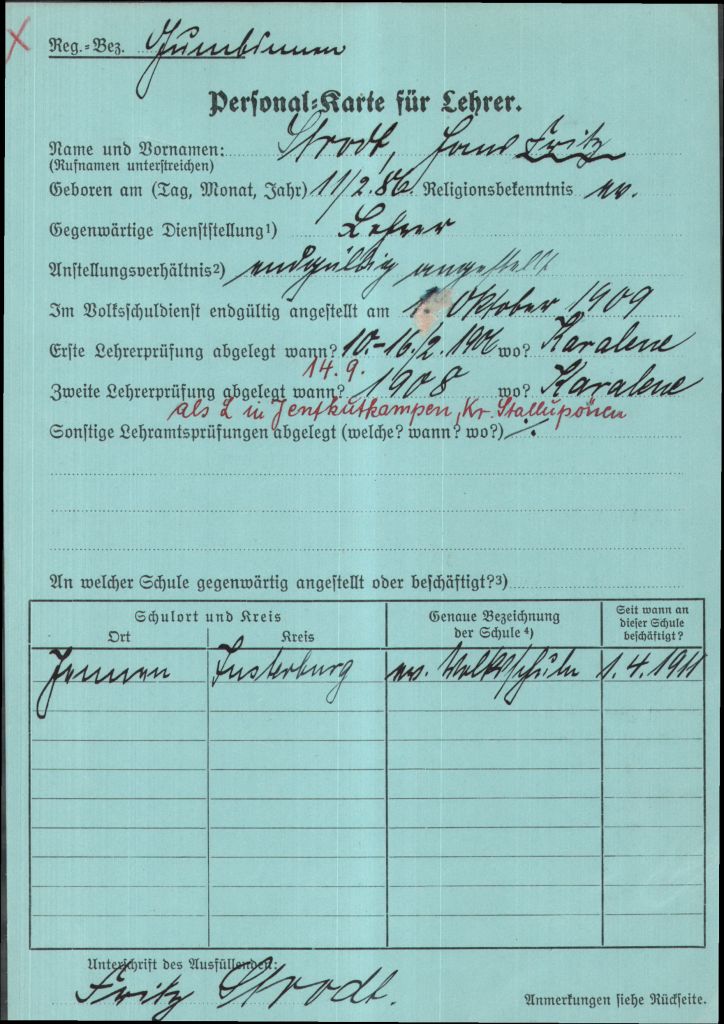 Reg.-Bez. Gumbinnen
Personal-Karte für Lehrer.
Name und Vornamen: Strodt, Hans Fritz
(Rufnamen unterstreichen)
Geboren am (Tag, Monat, Jahr) 11/2.86. Religionsbekenntnis ev.
Gegenwärtige Dienststellung¹) Lehrer
Anstellungsverhältnis²) endgültig angestellt
Im Volksschuldienst endgültig angestellt am 1. Oktober 1909
Erste Lehrerprüfung abgelegt wann? 10.-16./2. 1906 wo? Karalene
14.9.
Zweite Lehrerprüfung abgelegt wann? 1908 wo? Karalene
als L in Jentkutkampen, Kr. Stallupönen
Sonstige Lehramtsprüfungen abgelegt (welche? wann? wo?) ./.
An welcher Schule gegenwärtig angestellt oder beschäftigt?³)
Schulort und Kreis
Genaue Bezeichnung der Schule⁴)
Seit wann an dieser Schule beschäftigt?
Ort Kreis
Insterburg ev. Volksschule 1.4.1911
Unterschrift des Ausfüllenden:
Fritz Strodt.
Anmerkungen siehe Rückseite.